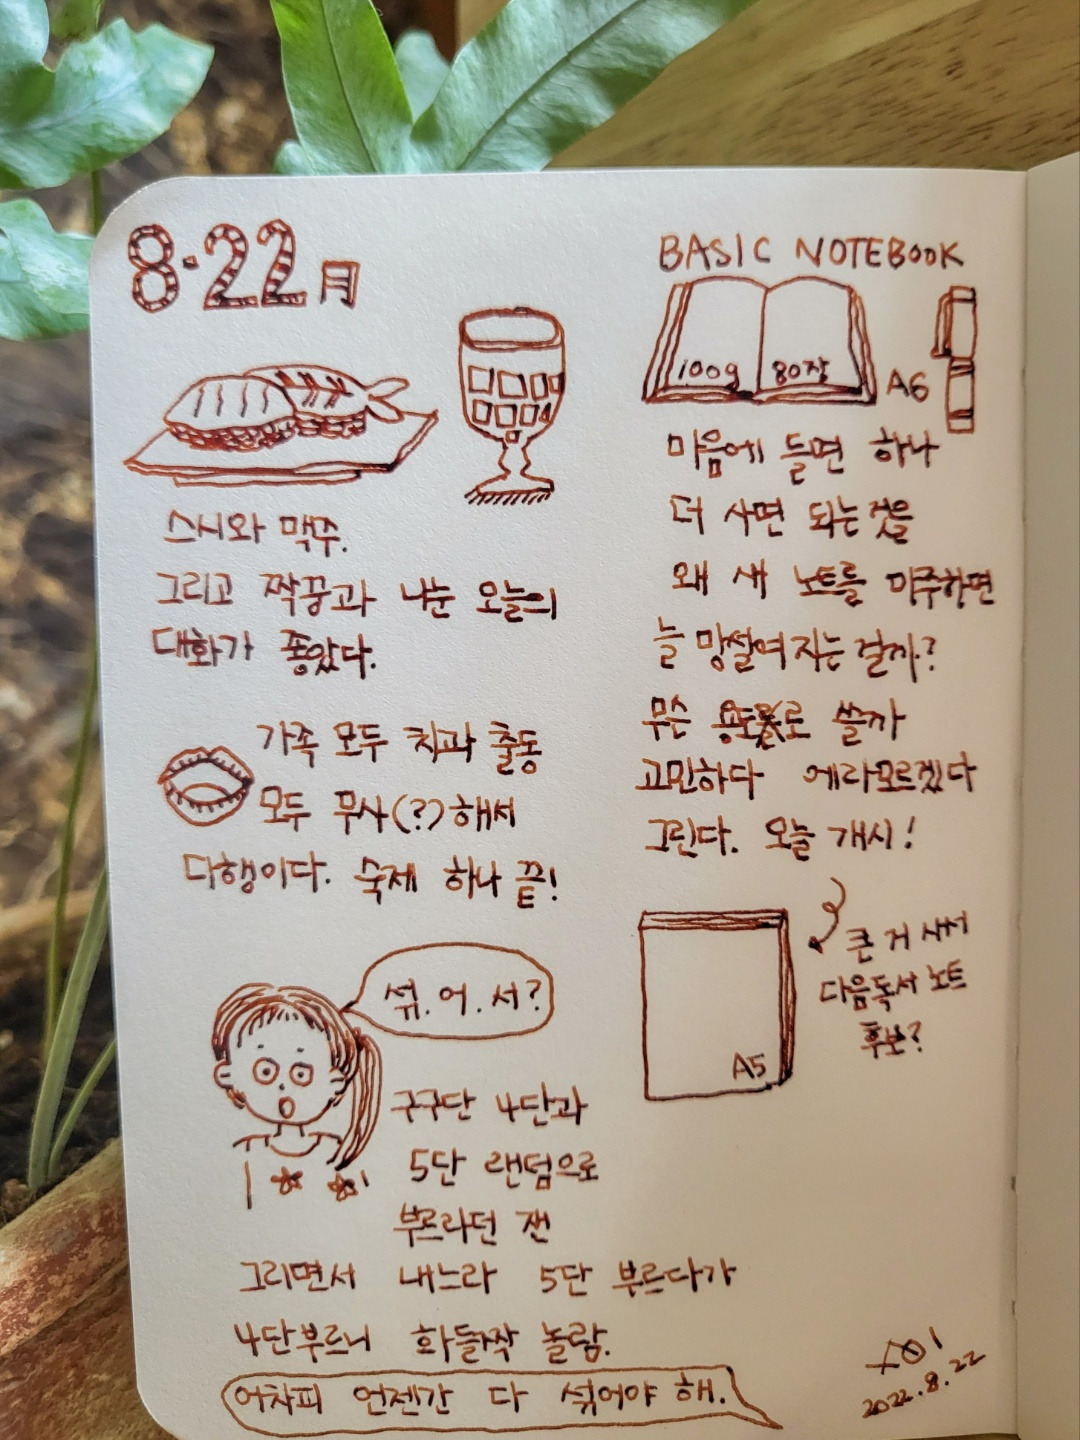 8·22 月
스시와 맥주.
그리고 짝꿍과 나눈 오늘의
대화가 좋았다.
가족 모두 치과 출동
모두 무사(?)해서
다행이다. 숙제 하나 끝!
섞.어.서?
구구단 4단과
5단 랜덤으로
부르라던 쟨
그리면서 내느라 5단 부르다가
4단부르니 화들짝 놀람.
어차피 언젠간 다 섞어야 해.
BASIC NOTEBOOK
100g 80장
A6
마음에 들면 하나
더 사면 되는것을
왜 새 노트를 마주하면
늘 망설여지는걸까?
무슨 용도로 쓸까
고민하다 에라모르겠다
그린다. 오늘 개시!
큰 거 사서
다음독서 노트
후보?
A5
2022.8.22